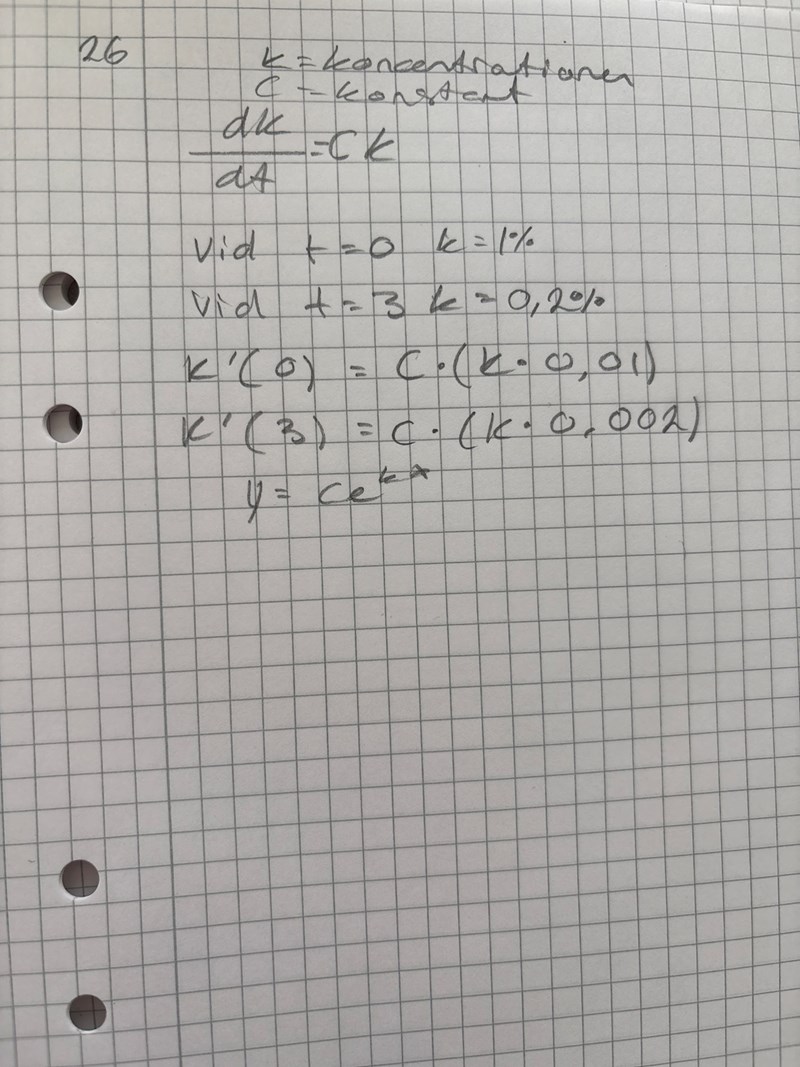 26
k = koncentrationen
C = konstant
dk/dt = Ck
Vid t = 0 k = 1%
Vid t = 3 k = 0,2%
K'(0) = C·(K·0,01)
K'(3) = C·(K·0,002)
y = Ce^kx